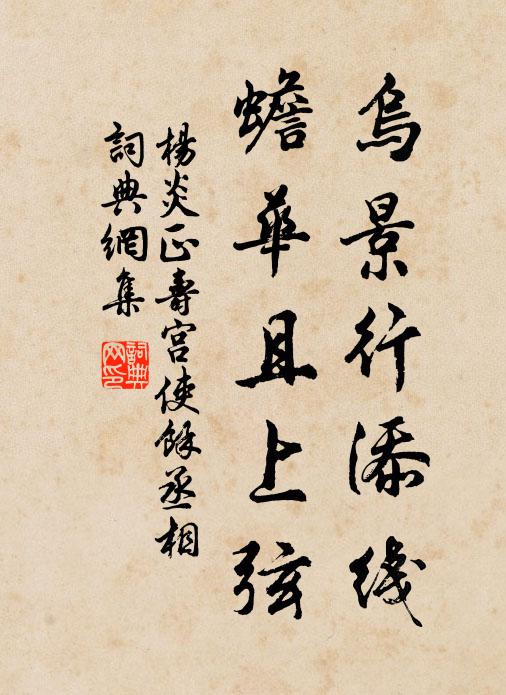 烏景行添线
蟾華且上弦
楊炎正壽宫使餘丞相
詞典網集
詞典网印